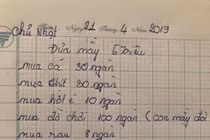 Chủ Nhật Ngày 21 Tháng 4 Năm 2019
Đưa mày 5 triệu
mua cá 30 ngàn
mua thịt 30 ngàn
mua hột é 10 ngàn
mua đồ chơi 100 ngàn (con mấy đó
mua rau 8 ngàn